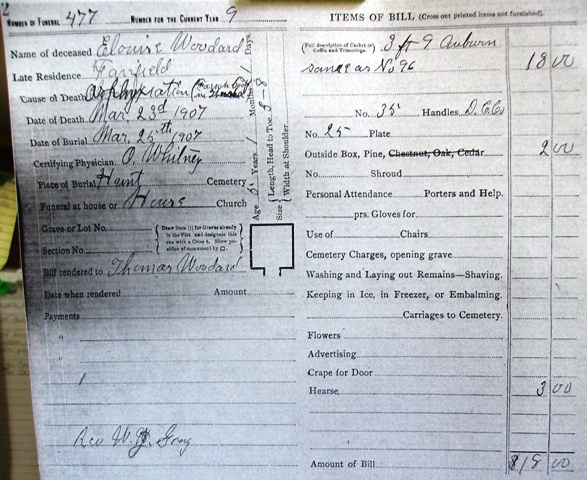 NUMBER OF FUNERAL 477 NUMBER FOR THE CURRENT YEAR 9
Name of deceased Elouise Woodard
Late Residence Fairfield
Cause of Death Asphyxiation
Date of Death Mar. 23d 1907
Date of Burial Mar. 25th 1907
Certifying Physician O. Whitney
Place of Burial Hunt Cemetery
Funeral at house or House Church
Grave or Lot No.
Section No.
Draw lines for Graves already in the Plot and designate this one with a Cross
Bill rendered to Thomas Woodard
Date when rendered Amount
Payments
"
"
Rev W. J. Gray
Age Years 1 Months Days
Size Length, Head to Toe 3-8
Width at Shoulder
ITEMS OF BILL (Cross out printed items not furnished).
(Full description of Casket or Coffin and Trimmings.) 3 ft 9 Auburn
same as No 96 18 00
No. 35 Handles D. C. Co
No. 25 Plate
Outside Box, Pine, Chestnut, Oak, Cedar 2 00
No. Shroud
Personal Attendance Porters and Help.
prs. Gloves for
Use of Chairs
Cemetery Charges, opening grave
Washing and Laying out Remains—Shaving.
Keeping in Ice, in Freezer, or Embalming.
Carriages to Cemetery.
Flowers
Advertising
Crape for Door
Hearse 3 00
Amount of Bill 00